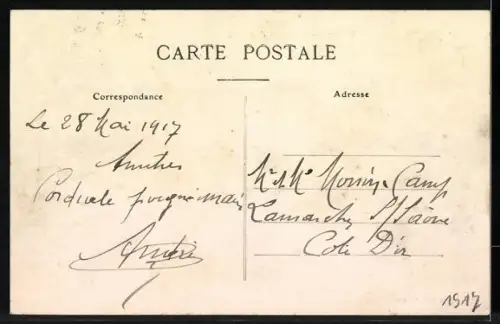 CARTE POSTALE
Correspondance
Adresse
Le 28 Mai 1917
Amitiés
Cordiale poignée main
André
Mr & Me Camp
Lamarche s/Saône
Cote D'or
1917